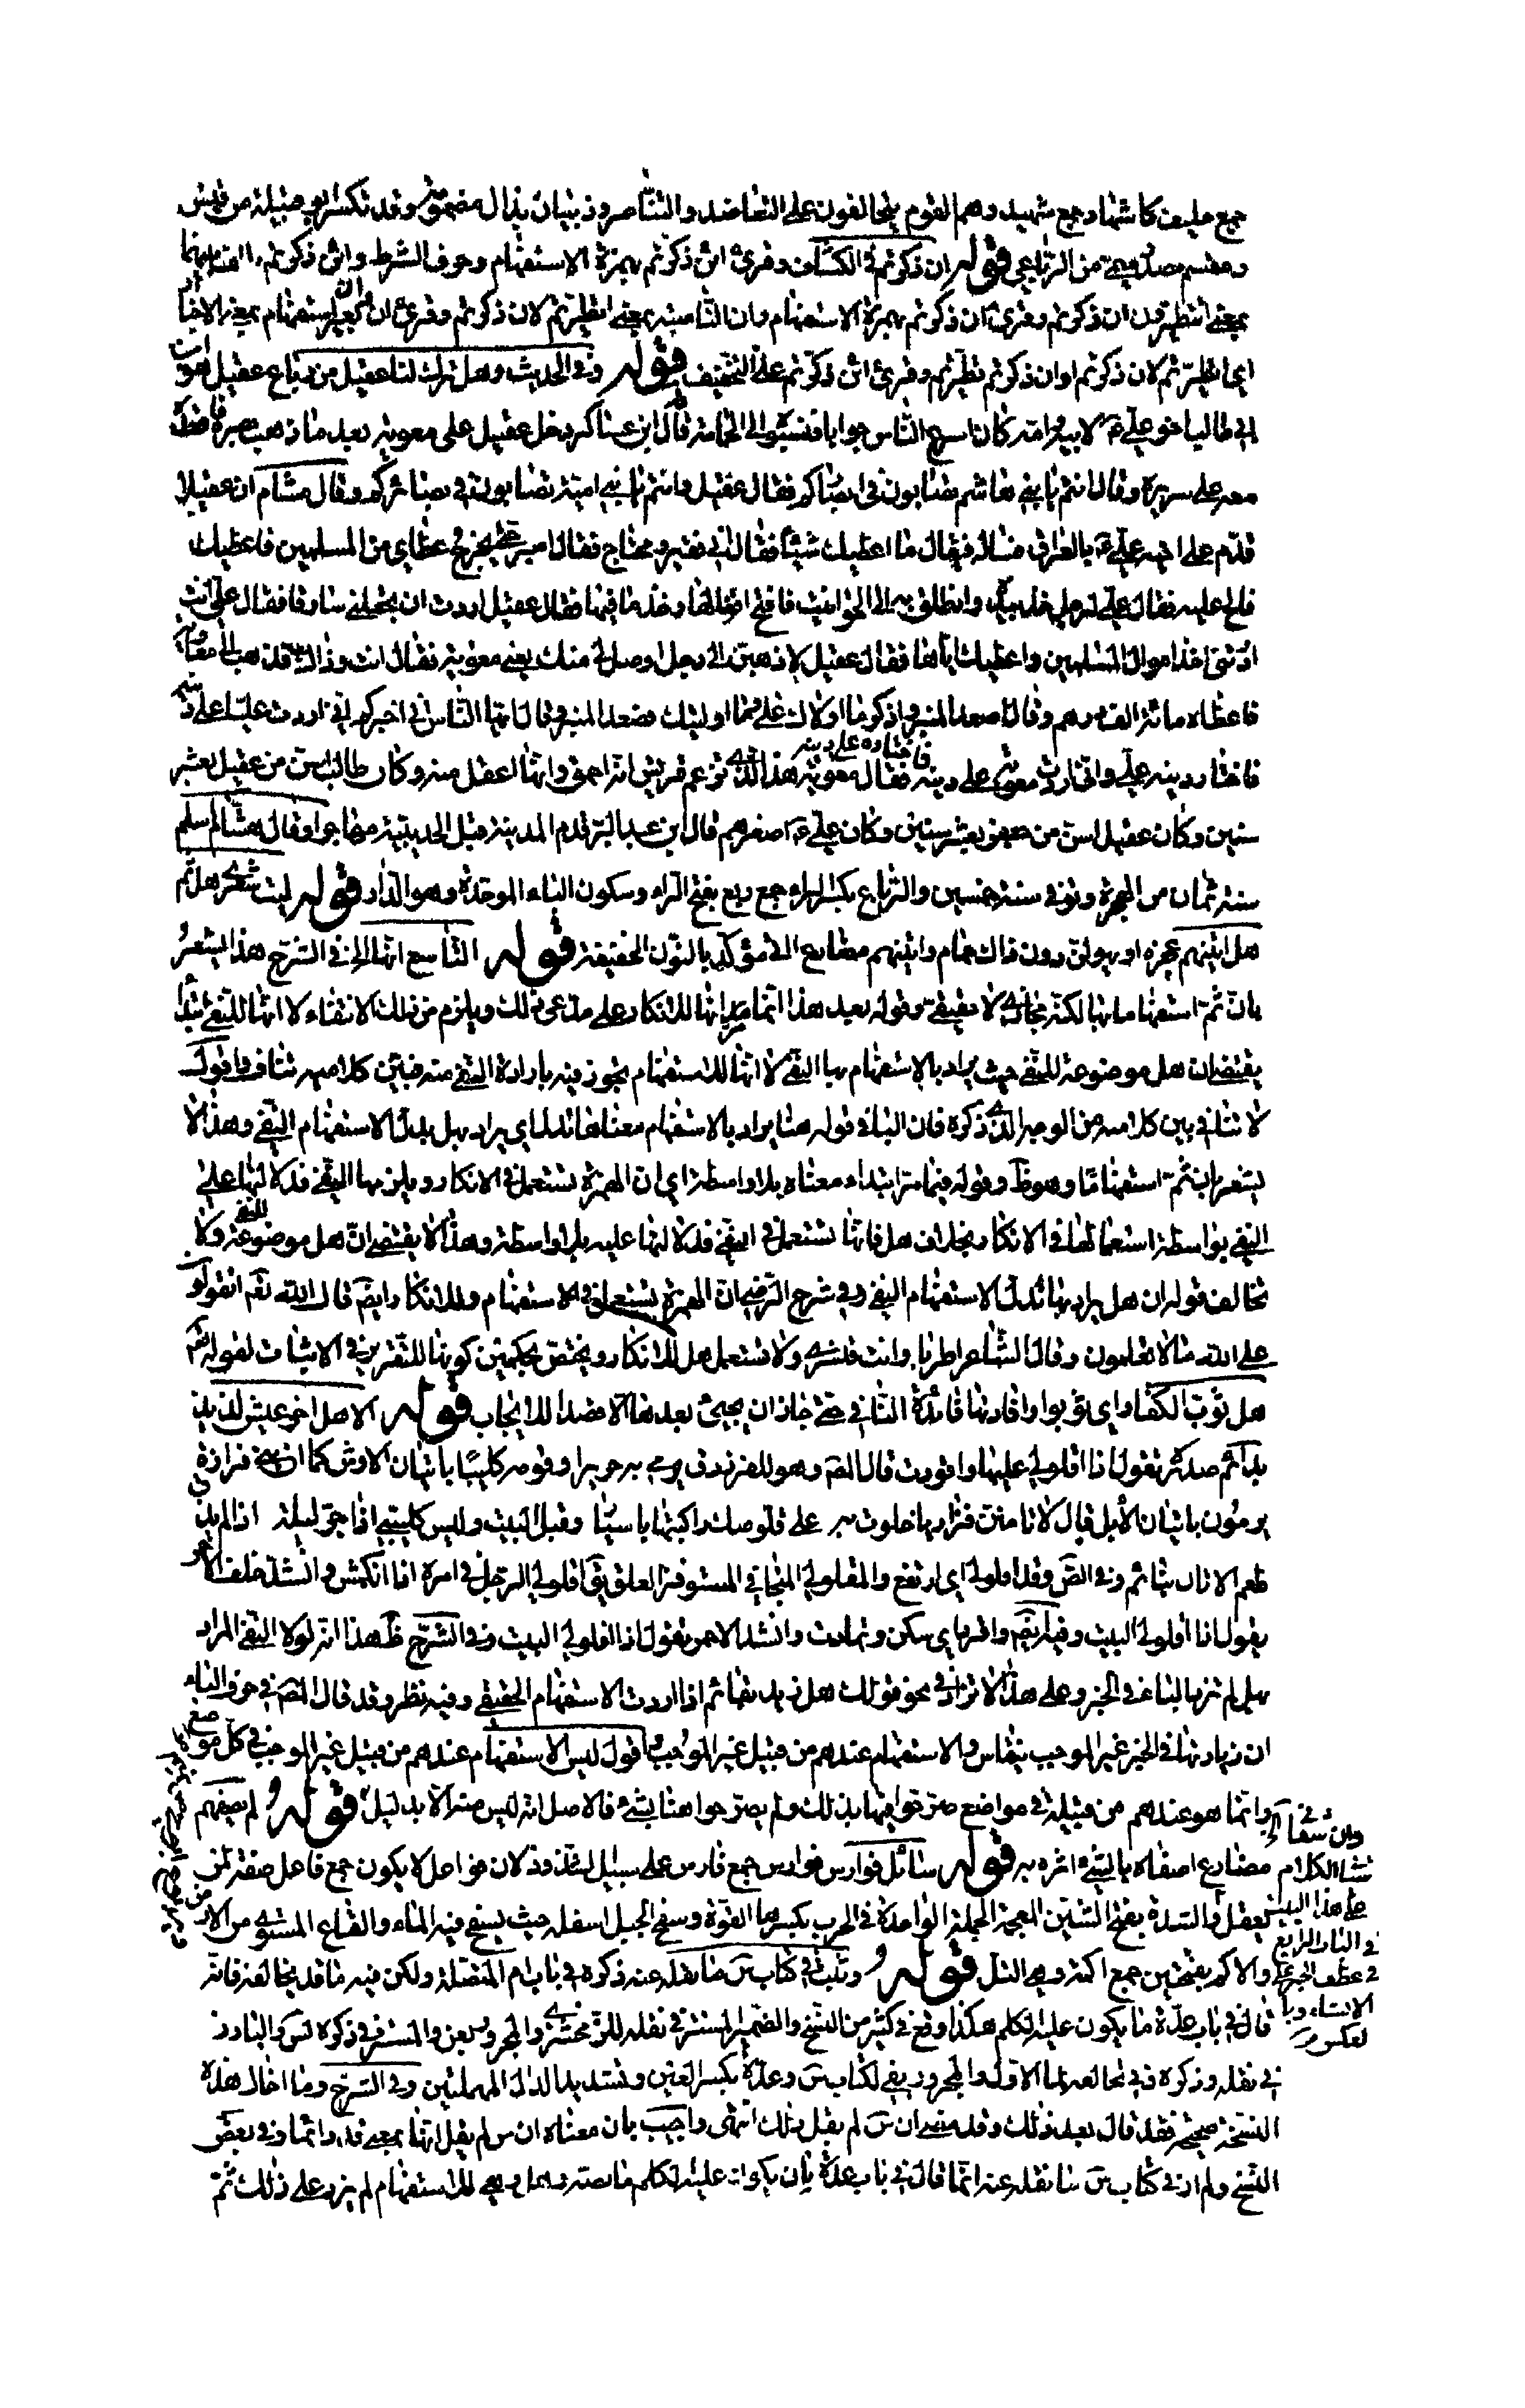 جمع حليف كاشهاد جمع شهيد وهم القوم يتحالفون على التعاضد والتناصر وذبيان بذال مضمومة وقد تكسر ابو قبيلة من قيس
ومقسم مصدر ميمي من الرباعي قوله ان ذكرتم في الكشاف وقرئ ائن ذكرتم بهمزة الاستفهام وحرف الشرط وائن ذكرتم
بمعنى اتطيرتم لان ذكرتم وقرئ ان ذكرتم بهمزة الاستفهام وان الناصبة بمعنى اتطيرتم لان ذكرتم وقرئ ان بغير استفهام بمعنى الاخبار
اى تطيرتم لان ذكرتم او ان ذكرتم تطيرتم وقرئ ائن ذكرتم على التخفيف قوله وفى الحديث وهل ترك لنا عقيل من رباع عقيل هو ابن
ابى طالب اخو على ع لابيه وامه كان اسرع الناس جوابا فنسبوه الى الحماقة قال ابن عساكر دخل عقيل على معوية بعد ما ذهب بصره فاقعده
معه على سريره وقال انتم يا بنى هاشم تصابون فى ابصاركم فقال عقيل وانتم يا بنى امية تصابون فى بصائركم وقال هشام ان عقيلا
قدم على اخيه على ع بالعراق فسأله فقال ما اعطيك شيئا فقال انى فقير ومحتاج فقال اصبر حتى يخرج عطاى من المسلمين فاعطيك
فالح عليه فقال على لرجل خذ بيده وانطلق به الى الحوانيت فافتح اقفالها وخذ ما فيها فقال عقيل اردت ان تجعلنى سارقا فقال على انت
اردتنى اخذ اموال المسلمين واعطيك اياها فقال عقيل لاذهبن الى رجل اوصل لى منك يعنى معوية فقال انت وذاك فذهب الى معاوية
فاعطاه مائة الف درهم وقال اصعد المنبر واذكر ما اولاك على وما اوليتك فصعد المنبر وقال ايها الناس انى اخبركم انى اردت عليا على دينه
فاختار دينه على وانى اردت معوية على دينه فاختارنى على دينه فقال معوية هذا الذى تزعم قريش انه احمق وانها اعقل منه وكان طالب اسن من عقيل بعشر
سنين وكان عقيل اسن من جعفر بعشر سنين وكان على ع اصغرهم قال ابن عبد البر قدم المدينة قبل الحديبية مهاجرا وقال هشام اسلم
سنة ثمان من الهجرة وتوفى سنة خمسين والرباع بكسر الراء جمع ربع بفتح الراء وسكون الباء الموحدة وهو الدار قوله ليت شعرى هل ثم
هل اتينهم قوله التاسع انها الخ فى الشرح هذا يشعر
بان ثم استفهاما بها لكنه مجازى لا حقيقى وقوله بعد هذا انما مر انها للانكار على مدعى ذلك ويلزم من ذلك الانتفاء لا انها للنفى ابتداء
يقتضى ان هل موضوعة للنفى حيث يراد بالاستفهام بها النفى لا انها للاستفهام تجوز فيه بارادة النفى منه فبين كلاميه تناف اقول
لا تنافى بين كلاميه من الوجه الذى ذكره فان الباء فى قوله هنا يراد بالاستفهام معناها بدل اى يراد بهل بدل الاستفهام النفى وهذا لا
يشعر بان ثمة استفهاما وهو ظ وقوله فيما مر ابتداء معناه بلا واسطة اى ان الهمزة تستعمل فى الانكار ويلزمها النفى فدلالتها على
النفى بواسطة استعمالها فى الانكار بخلاف هل فانها تستعمل فى النفى فدلالتها عليه بلا واسطة وهذا لا يقتضى ان هل موضوعة للنفى وكلا
يخالف قوله ان هل يراد بها بدل الاستفهام النفى وفى شرح الرضى ان الهمزة تستعمل فى الاستفهام وللانكار ايضا قال الله تعالى اتقولون
على الله ما لا تعلمون وقال الشاعر اطربا وانت قنسرى ولا تستعمل هل للانكار ويختص بحكمين كونها للتقرير فى الاثبات لقوله تعالى
هل ثوب الكفار اى ثوبوا وافادتها فائدة النافى حتى جاز ان يجئ بعدها الا قصدا للايجاب قوله الا هل اخو عيش لذيذ
بدائم صدره تقول اذا اقلولى عليها واقردت قال المص وهو للفرزدق يرمى به جريرا وقومه كليبا باتيان الاتن كما ان بنى فزارة
يرمون باتيان الابل قال لا تامنن فزاريا خلوت به على قلوصك واكتبها باسيار وقبل البيت وليس كليبى اذا جن ليله اذا لم يذق
طعم الاتان بنائم وفى الص وقد اقلولى اى ارتفع والمقلولى المتجافى المستوفز القلق يق اقلولى الرجل فى امره اذا انكمش وانشد خلف الاحمر
يقول اذا اقلولى البيت وفيه ايضا واقرد اى سكن وتماوت وانشد الاحمر يقول اذا اقلولى البيت وفى الشرح ظ هذا انه لولا النفى المراد
بهل لم تزد الباء فى الخبر وعلى هذا لا تزاد فى نحو قولك هل زيد بقائم اذا اردت الاستفهام الحقيقى وفيه نظر وقد قال المص فى حرف الباء
ان زيادتها فى الخبر غير الموجب ينقاس والاستفهام عندهم من قبيل غير الموجب اقول ليس الاستفهام عندهم من قبيل غير الموجب فى كل موضع
وانما هو عندهم من قبيله فى مواضع صرحوا فيها بذلك ولم يصرحوا هنا بشئ فالاصل انه ليس منه الا بدليل قوله لم يصفهم
مضارع اصفاه بالشئ اثره به قوله سائل فوارس فوارس جمع فارس على سبيل الشذوذ لان فواعل لا يكون جمع فاعل صفة لمن
يعقل والشدة بفتح الشين المعجمة الحملة الواحدة فى الحرب بكسرها القوة وسفح الجبل اسفله حيث يسفح فيه الماء والقاع المستوى من الارض
والاكم بفتحتين جمع اكمة وهى التل قوله وثبت فى كتاب س ما نقله عنه ذكره فى باب ام المنفصلة ولكن فيه ما قد يخالفه فانه
قال فى باب عدة ما يكون عليه الكلم هكذا وقع فى كثير من النسخ والضمير المستتر فى نقله للزمخشرى والمجرور بعن والمستتر فى ذكره لس والبارز
فى نقله وذكره وفى يخالفه لما الاولى والمجرور بفى لكتاب س وعدة بكسر العين وتشديد الدال المهملتين وفى الشرح وما اخال هذه
النسخة صحيحة فقد قال بعد ذلك وقد مضى ان س لم يقل ذلك انتهى واجيب بان معناه ان س لم يقل انها بمعنى قد دائما وفى بعض
النسخ ولم ار فى كتاب س ما نقله عنه انما قال فى باب عدة ما يكون عليه الكلم ما نصه وهل وهى للاستفهام لم يزد على ذلك ثم
نشاء الكلام
على هذا البيت
فى الباب الرابع
فى عطف الخبر على
الانشاء وبا
لعكس